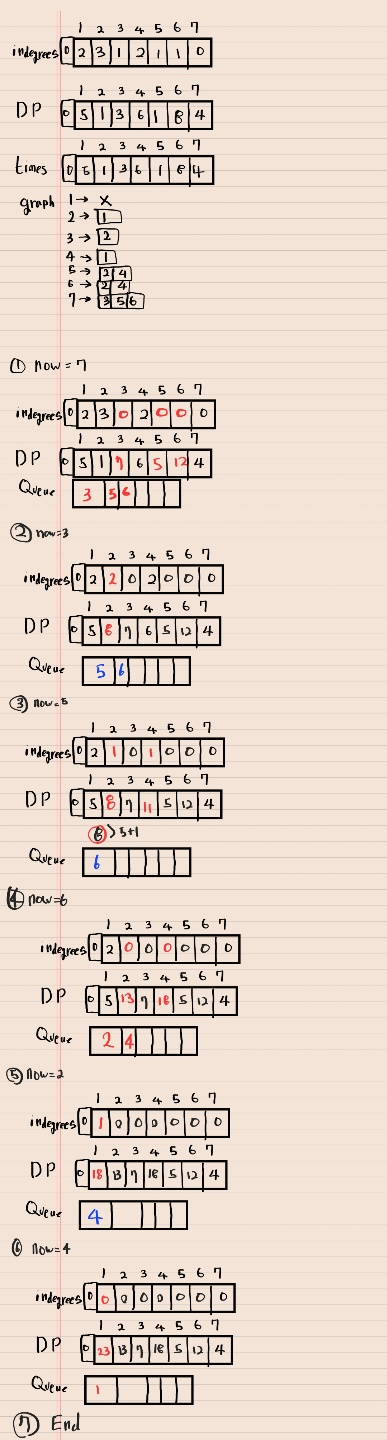 1 2 3 4 5 6 7
indegrees 0 2 3 1 2 1 1 0
1 2 3 4 5 6 7
DP 0 5 1 3 6 1 8 4
1 2 3 4 5 6 7
times 0 5 1 3 6 1 8 4
graph 1 → X
2 → 1
3 → 2
4 → 1
5 → 2 4
6 → 2 4
7 → 3 5 6
① now = 7
1 2 3 4 5 6 7
indegrees 0 2 3 0 2 0 0 0
1 2 3 4 5 6 7
DP 0 5 1 7 6 5 12 4
Queue 3 5 6
② now=3
1 2 3 4 5 6 7
indegrees 0 2 2 0 2 0 0 0
1 2 3 4 5 6 7
DP 0 5 8 7 6 5 12 4
Queue 5 6
③ now=5
1 2 3 4 5 6 7
indegrees 0 2 1 0 1 0 0 0
1 2 3 4 5 6 7
DP 0 5 8 7 11 5 12 4
8 > 5+1
Queue 6
④ now=6
1 2 3 4 5 6 7
indegrees 0 2 0 0 0 0 0 0
1 2 3 4 5 6 7
DP 0 5 13 7 18 5 12 4
Queue 2 4
⑤ now=2
1 2 3 4 5 6 7
indegrees 0 1 0 0 0 0 0 0
1 2 3 4 5 6 7
DP 0 18 13 7 18 5 12 4
Queue 4
⑥ now=4
1 2 3 4 5 6 7
indegrees 0 0 0 0 0 0 0 0
1 2 3 4 5 6 7
DP 0 23 13 7 18 5 12 4
Queue 1
⑦ End